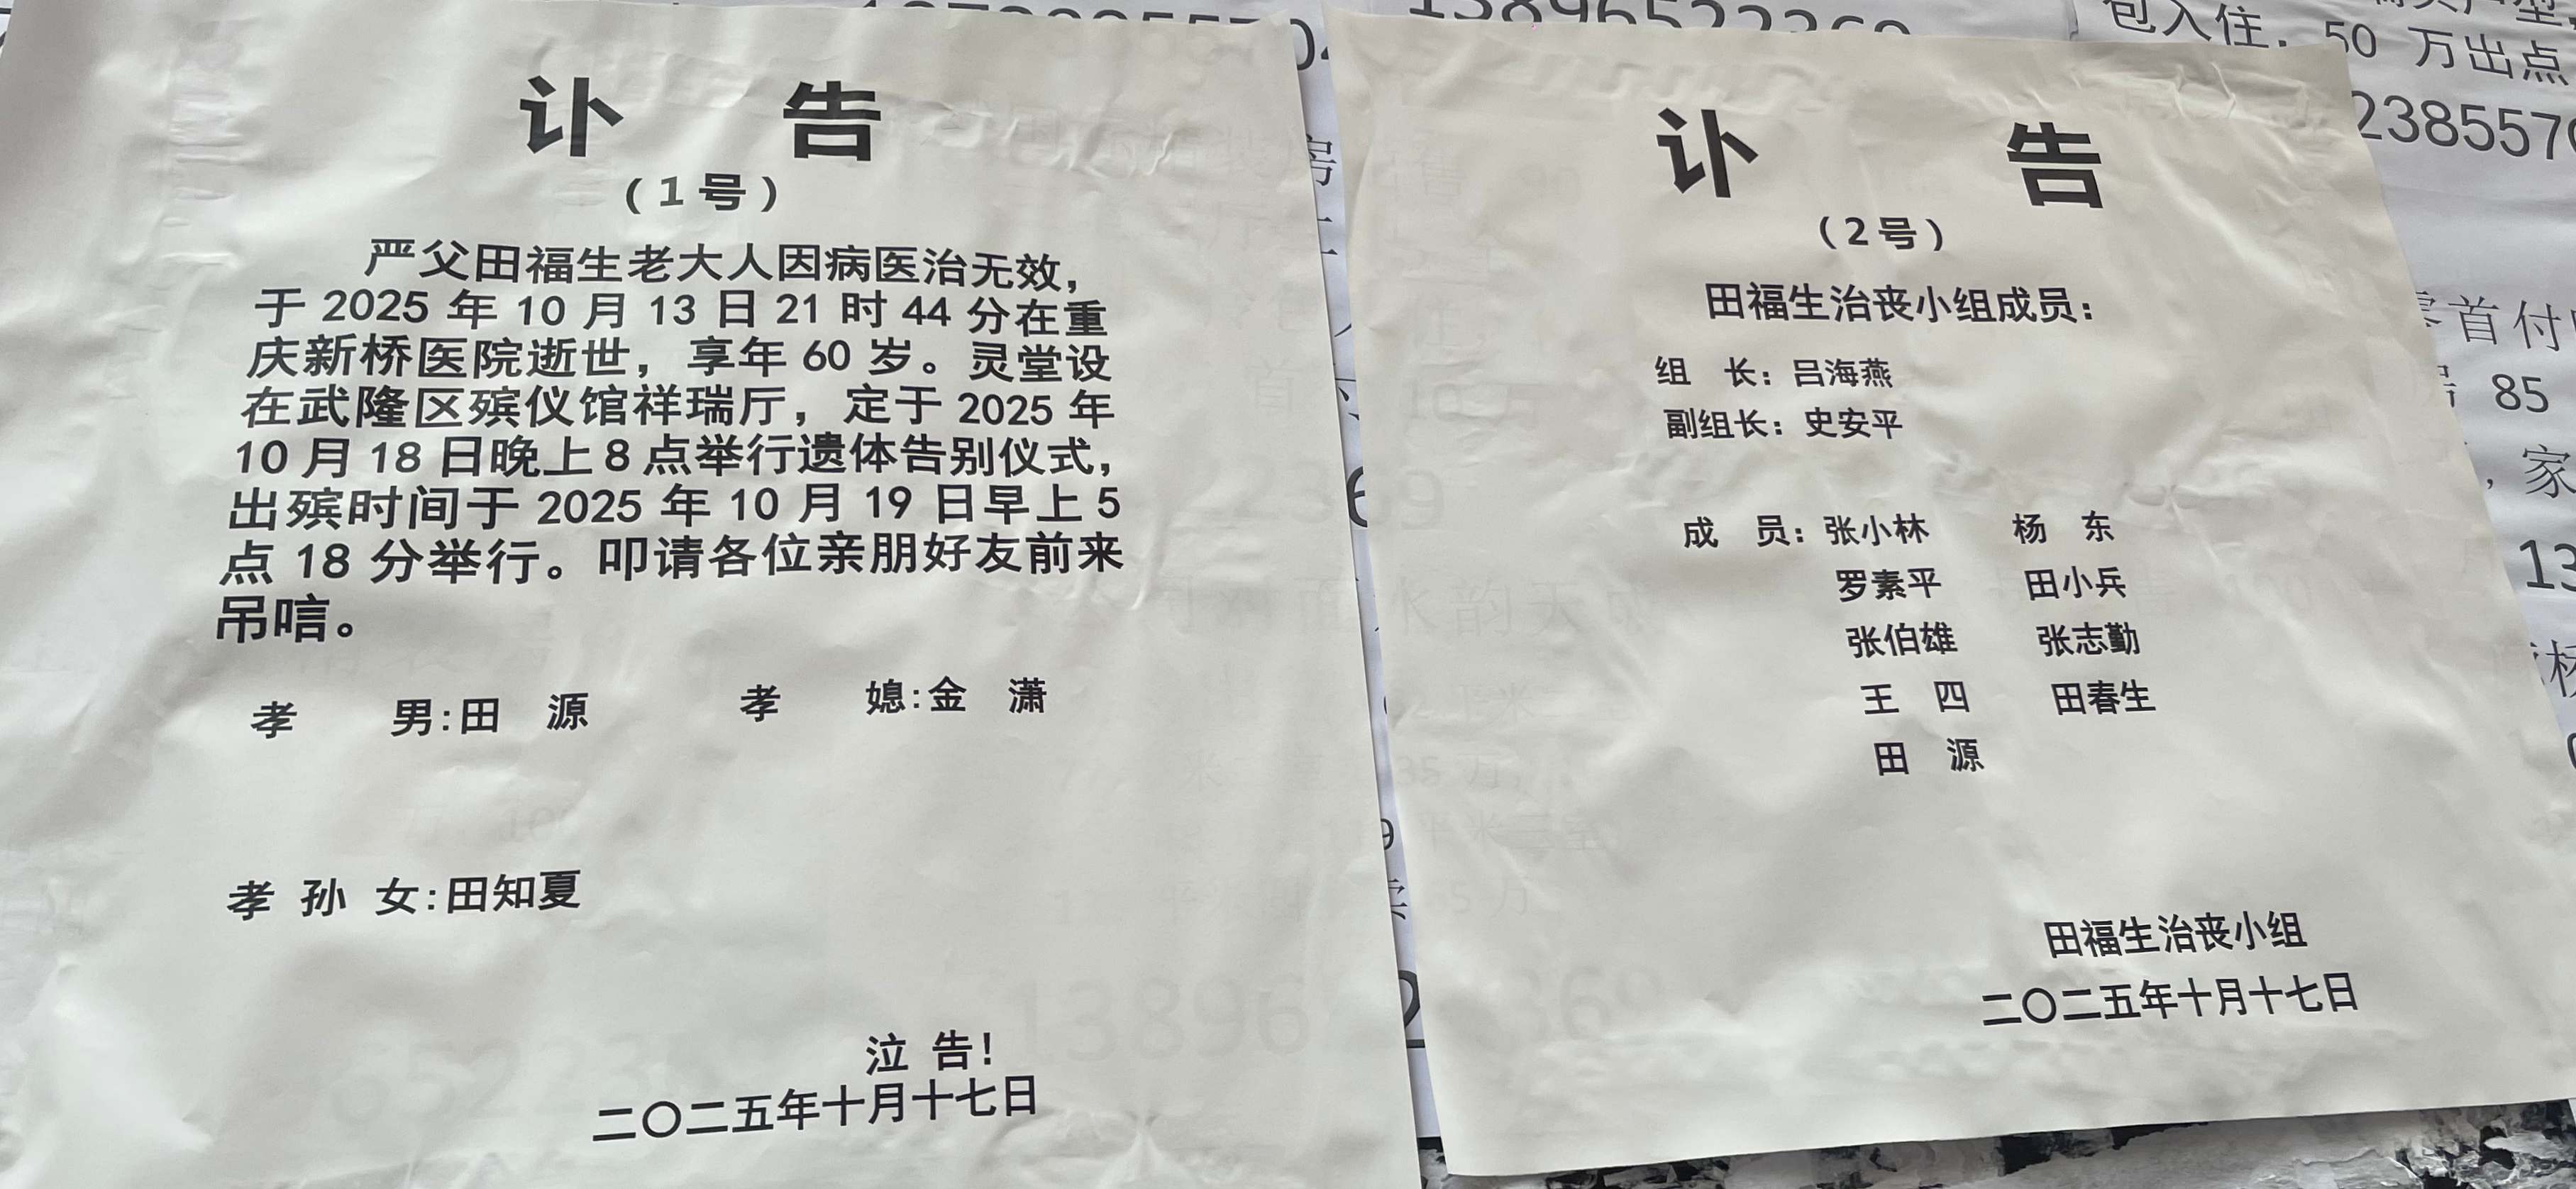 讣 告
(1号)
严父田福生老大人因病医治无效，
于 2025 年 10 月 13 日 21 时 44 分在重
庆新桥医院逝世，享年 60 岁。灵堂设
在武隆区殡仪馆祥瑞厅，定于 2025 年
10 月 18 日晚上 8 点举行遗体告别仪式，
出殡时间于 2025 年 10 月 19 日早上 5
点 18 分举行。叩请各位亲朋好友前来
吊唁。
孝 男:田 源 孝 媳:金 潇
孝 孙 女:田知夏
泣 告!
二〇二五年十月十七日
讣 告
(2号)
田福生治丧小组成员：
组 长：吕海燕
副组长：史安平
成 员：张小林 杨 东
罗素平 田小兵
张伯雄 张志勤
王 四 田春生
田 源
田福生治丧小组
二〇二五年十月十七日
包入住，50 万出点
2385570
零首付
85
，家
13